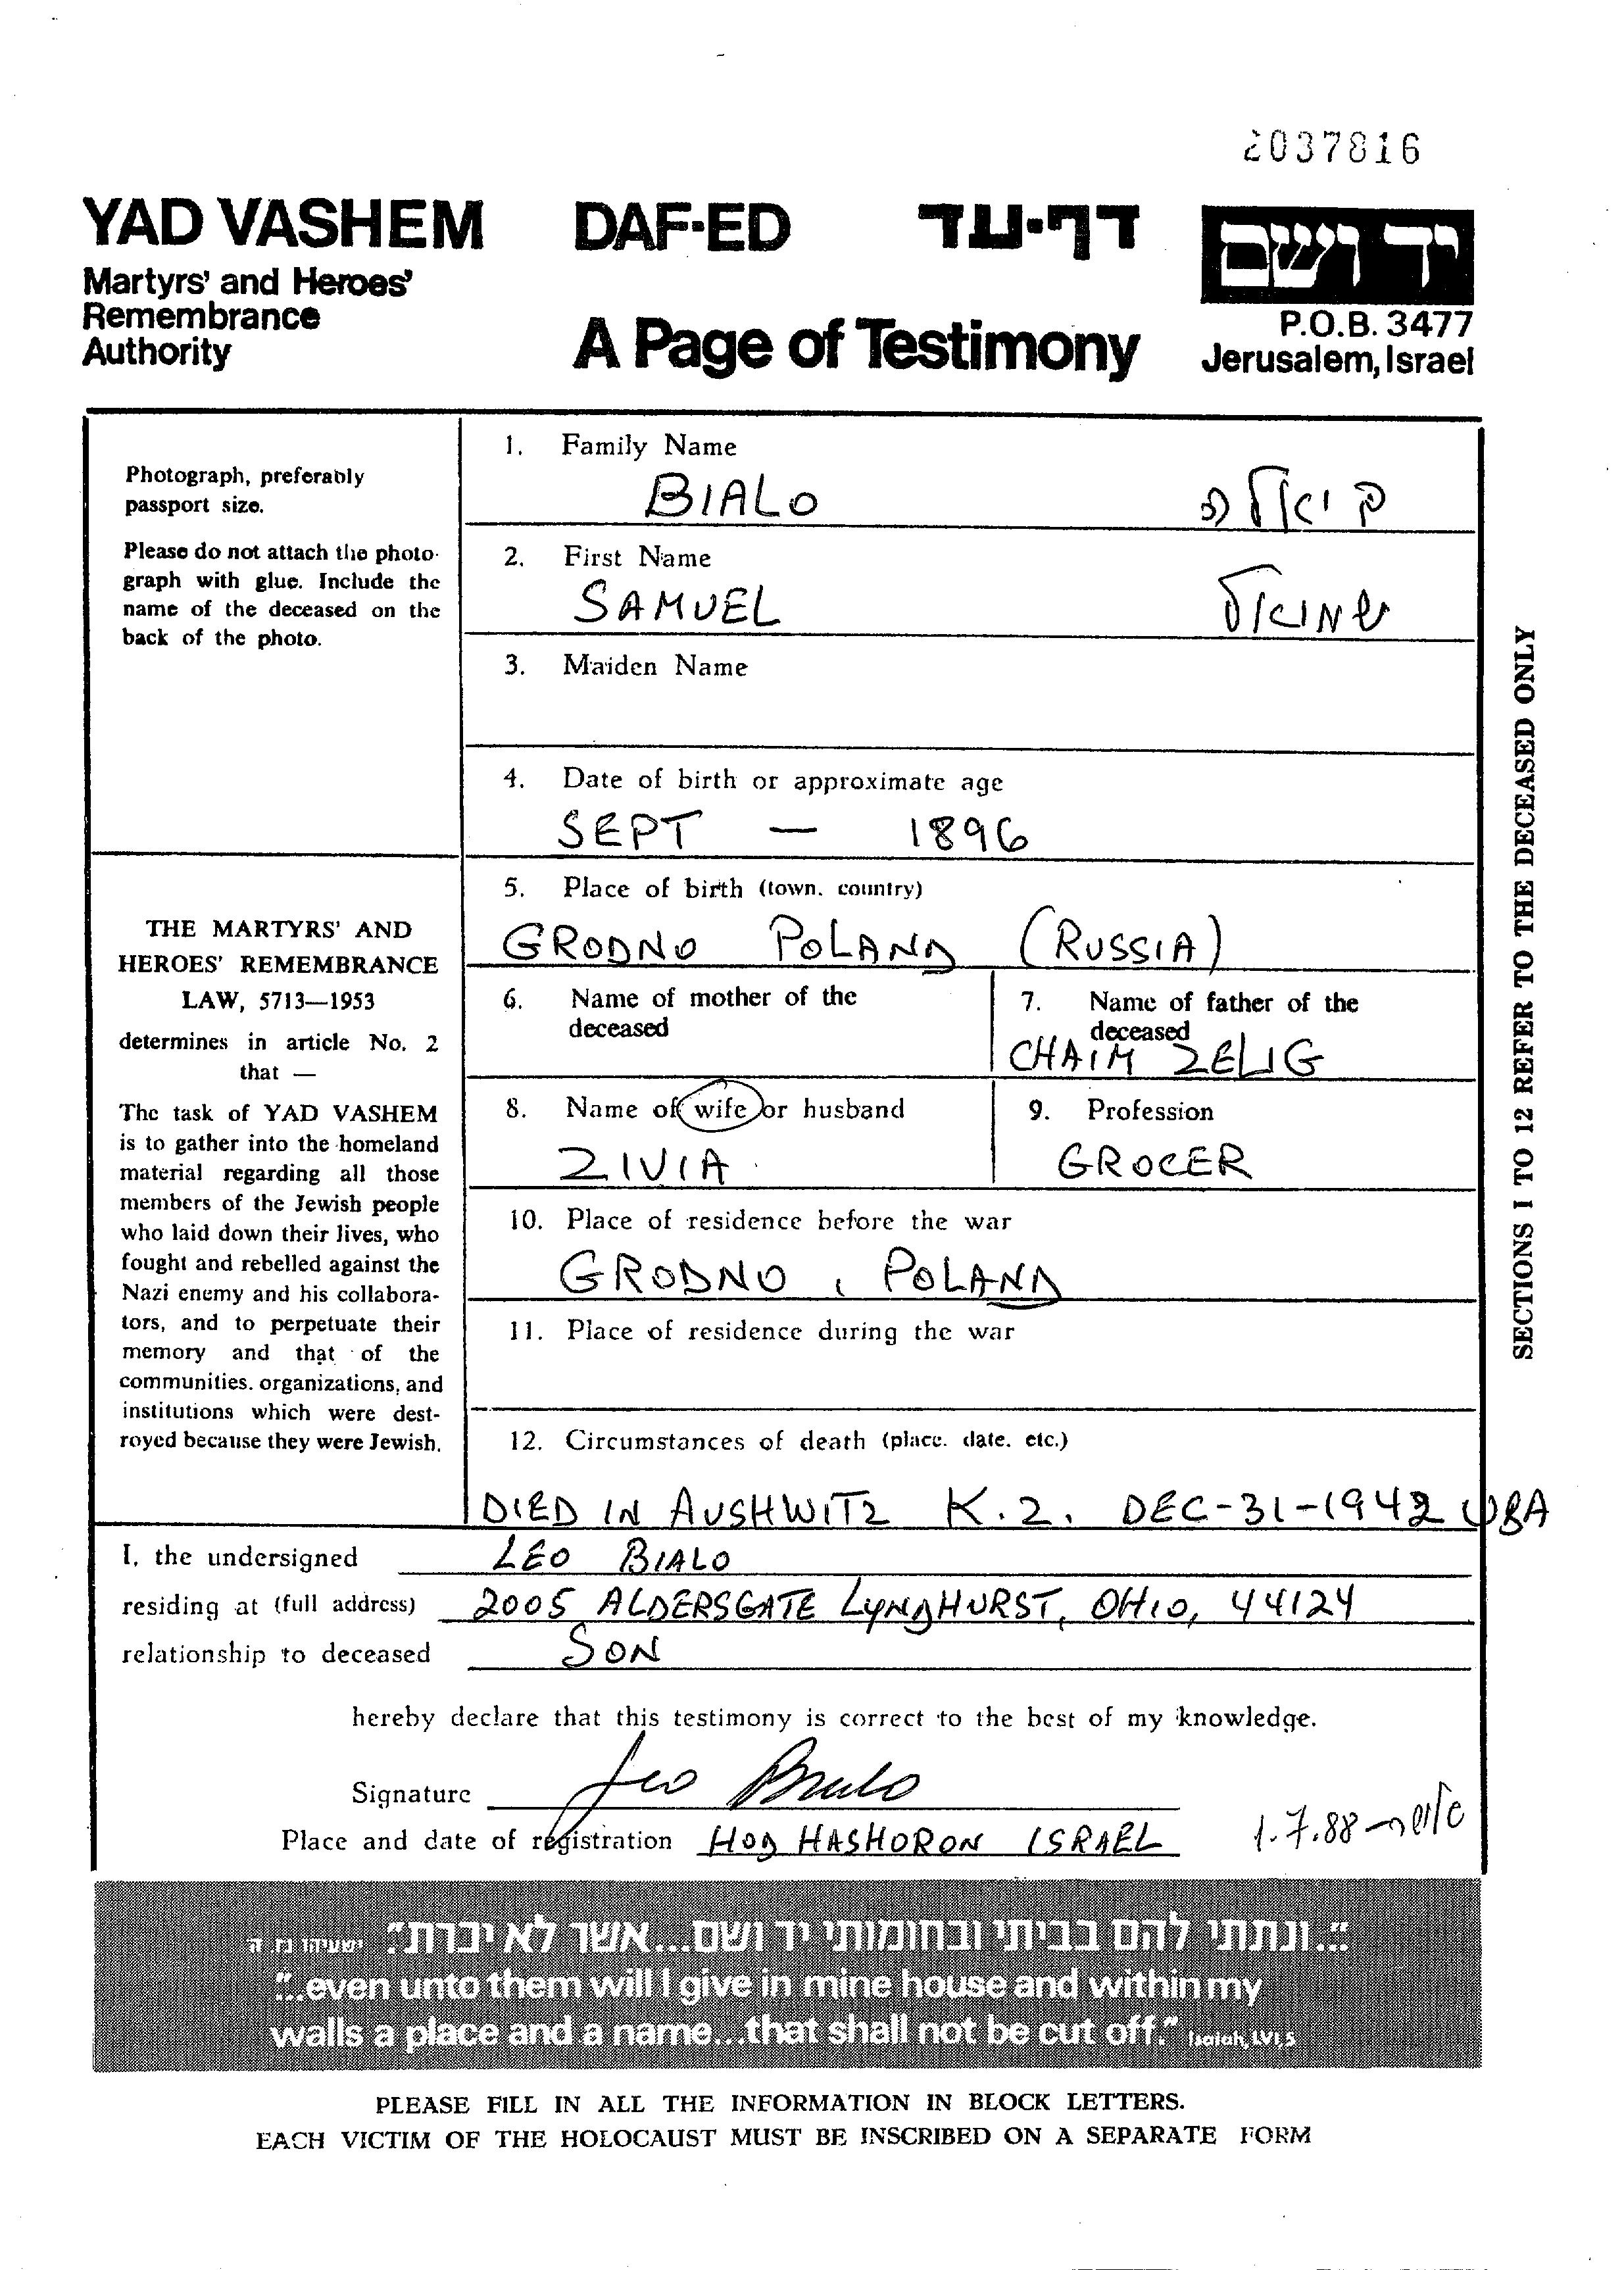 2037816
YAD VASHEM DAF-ED דף-עד יד ושם
Martyrs' and Heroes'
Remembrance
Authority
A Page of Testimony
P.O.B. 3477
Jerusalem, Israel
Photograph, preferably
passport size.
Please do not attach the photo-
graph with glue. Include the
name of the deceased on the
back of the photo.
THE MARTYRS' AND
HEROES' REMEMBRANCE
LAW, 5713—1953
determines in article No. 2
that —
The task of YAD VASHEM
is to gather into the homeland
material regarding all those
members of the Jewish people
who laid down their lives, who
fought and rebelled against the
Nazi enemy and his collabora-
tors, and to perpetuate their
memory and that of the
communities. organizations, and
institutions which were dest-
royed because they were Jewish.
1. Family Name
BIALO
2. First Name
SAMUEL שמואל
3. Maiden Name
4. Date of birth or approximate age
SEPT — 1896
5. Place of birth (town. country)
GRODNO POLAND (RUSSIA)
6. Name of mother of the
deceased
7. Name of father of the
deceased
CHAIM ZELIG
8. Name of wife or husband
ZIVIA
9. Profession
GROCER
10. Place of residence before the war
GRODNO, POLAND
11. Place of residence during the war
12. Circumstances of death (place. date. etc.)
DIED IN AUSHWITZ K.2. DEC-31-1942
SECTIONS 1 TO 12 REFER TO THE DECEASED ONLY
I, the undersigned LEO BIALO
residing at (full address) 2005 ALDERSGATE LYNDHURST, OHIO, 44124
relationship to deceased SON
hereby declare that this testimony is correct to the best of my knowledge.
Signature Leo Bialo
Place and date of registration HOD HASHORON ISRAEL 1.7.88
"...ונתתי להם בביתי ובחומותי יד ושם...אשר לא יכרת". ישעיהו נו ה
"...even unto them will I give in mine house and within my
walls a place and a name...that shall not be cut off." Isaiah, LVI,5
PLEASE FILL IN ALL THE INFORMATION IN BLOCK LETTERS.
EACH VICTIM OF THE HOLOCAUST MUST BE INSCRIBED ON A SEPARATE FORM